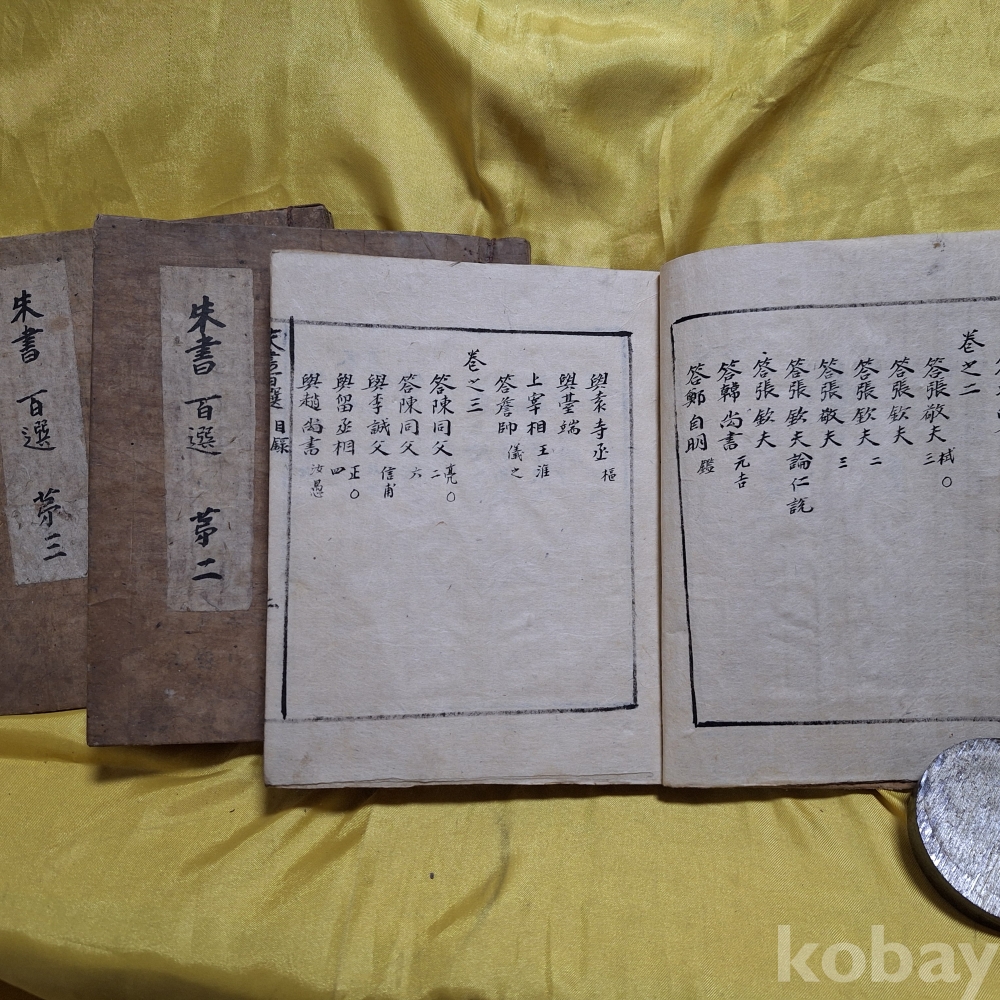 朱書 百選 第三
朱書 百選 第二
卷之二
答張敬夫 栻 三 ○
答張欽夫
答張欽夫 二
答張敬夫 三
答張欽夫論仁說
答張欽夫
答韓尚書 元吉
答鄭自明 鑑
與袁寺丞 樞
與臺端
上宰相 王淮
答詹帥 儀之
卷之三
答陳同父 亮 二 ○
答陳同父 六
與李誠父 信甫
與留丞相 正 四 ○
與趙尚書 汝愚
百選 目錄
kobay